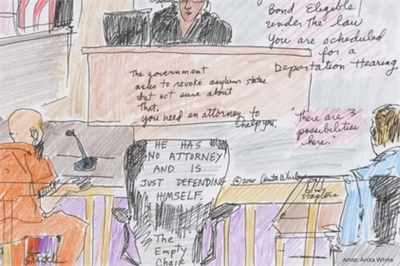 Bond Eligible
under the law
You are scheduled
for a
Deportation Hearing
The government
asks to revoke asylum status
but not sure about
That,
you need an attorney to
help you,
"There are 3
possibilities
here."
HE HAS
NO ATTORNEY
AND IS
JUST DEFENDING
HIMSELF.
The
Empty
Chair
©2010 Anita White
Artist: Anita White